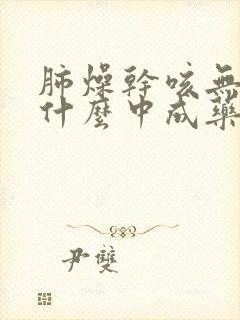 肺燥幹咳無
什麼中成藥
尹雙